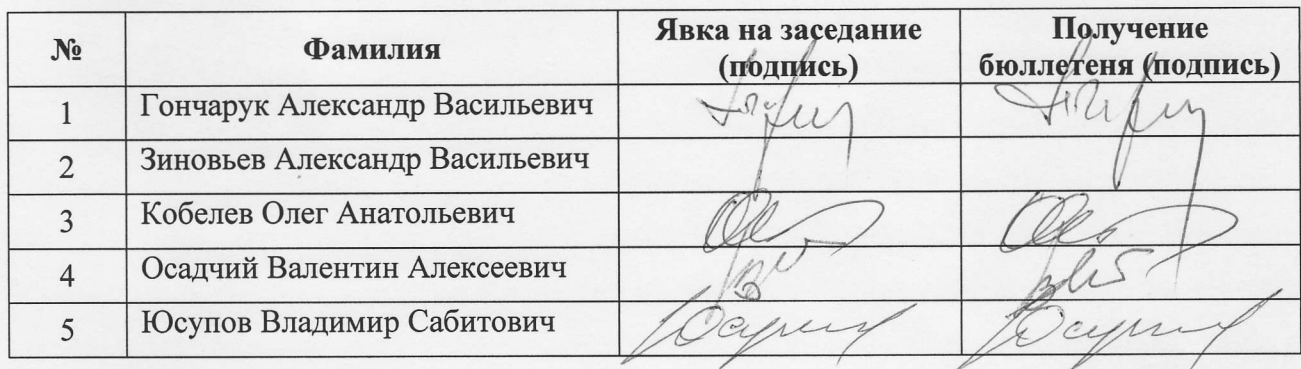 № Фамилия Явка на заседание (подпись) Получение бюллетеня (подпись)
1 Гончарук Александр Васильевич
2 Зиновьев Александр Васильевич
3 Кобелев Олег Анатольевич
4 Осадчий Валентин Алексеевич
5 Юсупов Владимир Сабитович